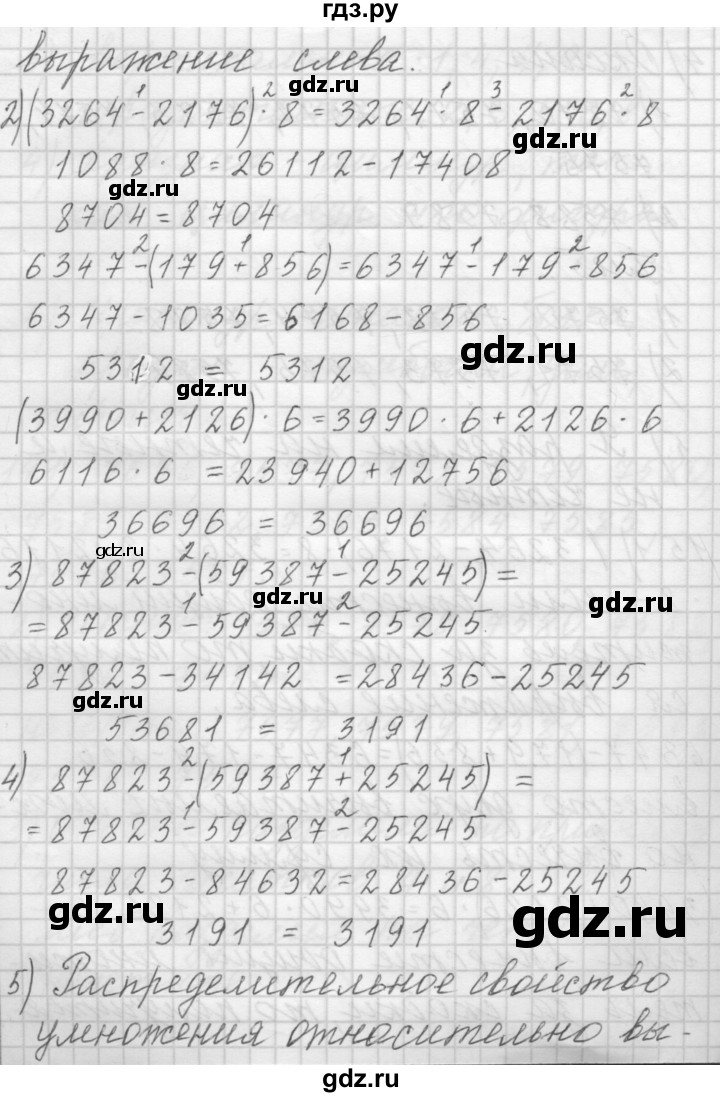 гдз.ру
выражение слева.
gdz.ru
2) (3264 - 2176) · 8 = 3264 · 8 - 2176 · 8
1 2 1 3 2
gdz.ru
1088 · 8 = 26112 - 17408
gdz.ru
8704 = 8704
2 1 1 2
6347 - (179 + 856) = 6347 - 179 - 856
6347 - 1035 = 6168 - 856
gdz.ru
5312 = 5312
gdz.ru
(3990 + 2126) · 6 = 3990 · 6 + 2126 · 6
6116 · 6 = 23940 + 12756
36696 = 36696
gdz.ru
2 1
3) 87823 - (59387 - 25245) =
gdz.ru
gdz.ru
1 2
= 87823 - 59387 - 25245
87823 - 34142 = 28436 - 25245
gdz.ru
53681 = 3191
2 1
4) 87823 - (59387 + 25245) =
gdz.ru
1 2
= 87823 - 59387 - 25245
87823 - 84632 = 28436 - 25245
gdz.ru
gdz.ru
3191 = 3191
5) Распределительное свойство
умножения относительно вы-
gdz.ru